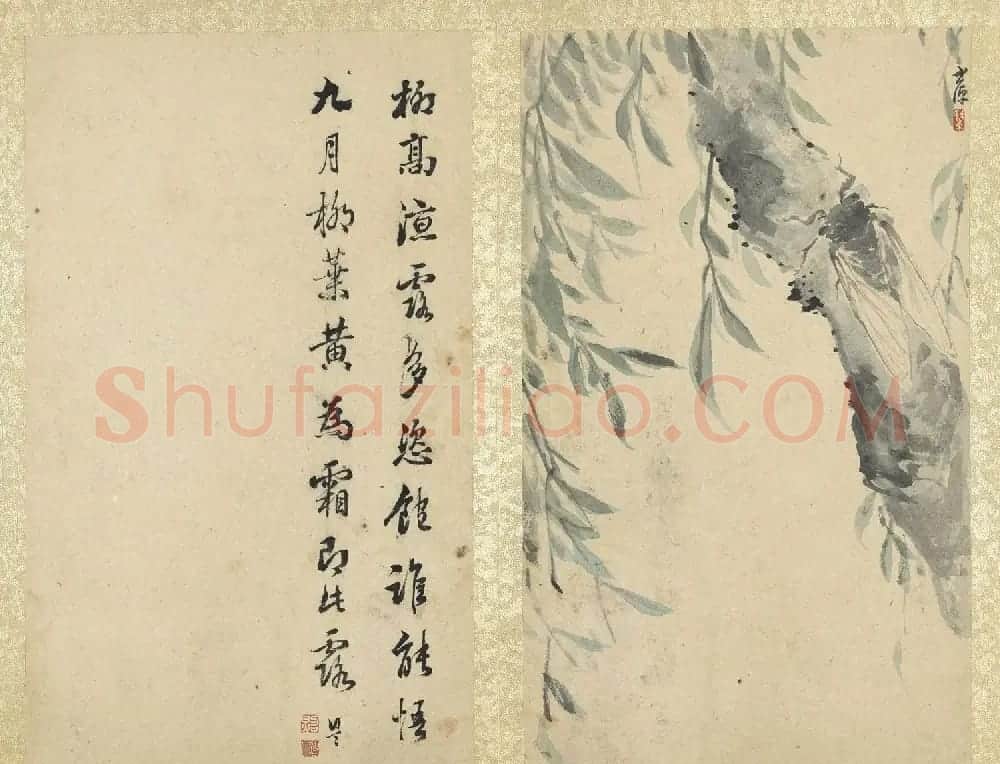 柳高涼露多恣飽誰能悟
九月柳葉黃為霜即此露
Shufaziliao.COM